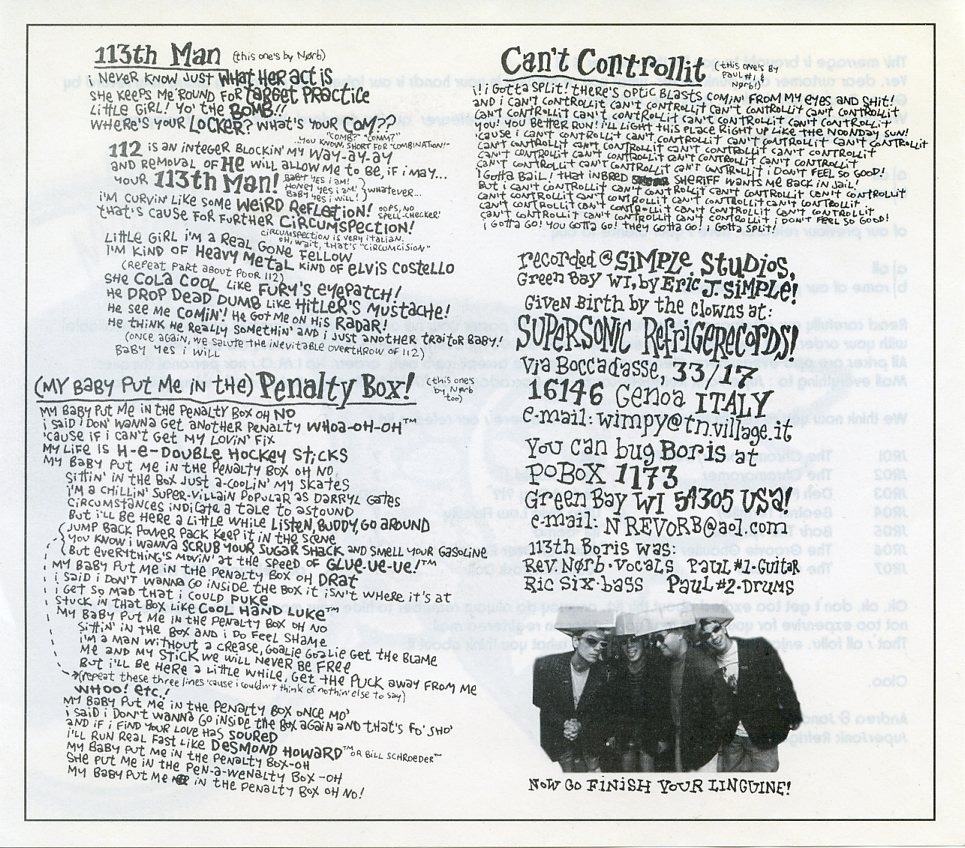 113th Man (this one's by Nørb)
i NEVER KNOW JUST WHAT HER ACT iS
SHE KEEPS ME 'ROUND FOR TARGET PRACTiCE
LiTTLE GiRL! YO' THE BOMB!!
WHERE'S YOUR LOCKER? WHAT'S YOUR COM??
"COMB?" "COMM?"
...YOU KNOW, SHORT FOR "COMBiNATiON!"
112 iS AN iNTEGER BLOCKiN' MY WAY-AY-AY
AND REMOVAL OF HE WiLL ALLOW ME TO BE, iF i MAY...
YOUR 113TH MAN!
BABY YES i AM!
HONEY YES i AM!
BABY YES i WiLL!
(WHATEVER...)
i'M CURViN' LiKE SOME WEiRD REFLECTiON!
OOPS, NO SPELL-CHECKER!
THAT'S CAUSE FOR FURTHER CiRCUMSPECTiON!
CiRCUMSPECTiON iS VERY iTALiAN.
OH, WAiT, THAT'S "CiRCUMCiSiON"
LiTTLE GiRL i'M A REAL GONE FELLOW
i'M KiND OF HEAVY METAL KiND OF ELViS COSTELLO
(REPEAT PART ABOUT POOR 112)
SHE COLA COOL LiKE FURY'S EYEPATCH!
HE DROP DEAD DUMB LiKE HiTLER'S MUSTACHE!
HE SEE ME COMiN'! HE GOT ME ON HiS RADAR!
HE THiNK HE REALLY SOMETHiN' AND i JUST ANOTHER TRAiTOR BABY!
(ONCE AGAiN, WE SALUTE THE iNEViTABLE OVERTHROW OF 112)
BABY YES i WiLL
(MY BABY PUT ME iN THE) PENALTY BOX! (this one's by Nørb too)
MY BABY PUT ME iN THE PENALTY BOX OH NO
i SAiD i DON' WANNA GET ANOTHER PENALTY WHOA-OH-OH™
'CAUSE iF i CAN'T GET MY LOViN' FiX
MY LiFE iS H-E-DOUBLE HOCKEY STiCKS
MY BABY PUT ME iN THE PENALTY BOX OH NO,
SiTTiN' iN THE BOX JUST A-COOLiN' MY SKATES
i'M A CHiLLiN' SUPER-ViLLAiN POPULAR AS DARRYL GATES
CiRCUMSTANCES iNDiCATE A TALE TO ASTOUND
BUT i'LL BE HERE A LiTTLE WHiLE LiSTEN, BUDDY, GO AROUND
(JUMP BACK POWER PACK KEEP iT iN THE SCENE
YOU KNOW i WANNA SCRUB YOUR SUGAR SHACK AND SMELL YOUR GASOLiNE
BUT EVERYTHiNG'S MOViN' AT THE SPEED OF GLUE-UE-UE!™
MY BABY PUT ME iN THE PENALTY BOX OH DRAT
i SAiD i DON'T WANNA GO iNSiDE THE BOX iT iSN'T WHERE iT'S AT
i GET SO MAD THAT i COULD PUKE
STUCK iN THAT BOX LiKE COOL HAND LUKE™
MY BABY PUT ME iN THE PENALTY BOX OH NO
SiTTiN' iN THE BOX AND i DO FEEL SHAME
i'M A MAN WiTHOUT A CREASE, GOALiE GOALiE GET THE BLAME
ME AND MY STiCK WE WiLL NEVER BE FREE
BUT i'LL BE HERE A LiTTLE WHiLE, GET THE PUCK AWAY FROM ME
(repeat these three lines 'cause i couldn't think of nothin' else to say)
WHOO! ETC.!
MY BABY PUT ME iN THE PENALTY BOX ONCE MO'
i SAiD i DON'T WANNA GO iNSiDE THE BOX AGAiN AND THAT'S FO' SHO'
AND iF i FiND YOUR LOVE HAS SOURED
i'LL RUN REAL FAST LiKE DESMOND HOWARD™ OR BiLL SCHROEDER™
MY BABY PUT ME iN THE PENALTY BOX-OH
SHE PUT ME iN THE PEN-A-WENALTY BOX-OH
MY BABY PUT ME iN THE PENALTY BOX OH NO!
Can't Controllit (THiS ONE'S BY PAUL #1, & Nørb!)
i! i GOTTA SPLiT! THERE'S OPTiC BLASTS COMiN' FROM MY EYES AND SHiT!
AND i CAN'T CONTROLLiT CAN'T CONTROLLiT CAN'T CONTROLLiT CAN'T CONTROLLiT
YOU! YOU BETTER RUN! i'LL LiGHT THiS PLACE RiGHT UP LiKE THE NOONDAY SUN!
'CAUSE i CAN'T CONTROLLiT CAN'T CONTROLLiT CAN'T CONTROLLiT CAN'T CONTROLLiT
CAN'T CONTROLLiT CAN'T CONTROLLiT CAN'T CONTROLLiT CAN'T CONTROLLiT
CAN'T CONTROLLiT CAN'T CONTROLLiT CAN'T CONTROLLiT CAN'T CONTROLLiT
CAN'T CONTROLLiT CAN'T CONTROLLiT CAN'T CONTROLLiT i DON'T FEEL SO GOOD!
i GOTTA BAiL! THAT iNBRED SHERiFF WANTS ME BACK iN JAiL!
BUT i CAN'T CONTROLLiT CAN'T CONTROLLiT CAN'T CONTROLLiT CAN'T CONTROLLiT
CAN'T CONTROLLiT CAN'T CONTROLLiT CAN'T CONTROLLiT CAN'T CONTROLLiT
CAN'T CONTROLLiT CAN'T CONTROLLiT CAN'T CONTROLLiT i DON'T FEEL SO GOOD!
i GOTTA GO! YOU GOTTA GO! THEY GOTTA GO! i GOTTA SPLiT!
recorded @ SiMPLE STUDiOS,
GREEN BAY Wi, by ERiC J. SiMPLE!
GiVEN BiRTH by the CLOWNS at:
SUPERSONiC REFRiGERECORDS!
Via Boccadasse, 33/17
16146 Genoa iTALY
e-mail: wimpy@tn.village.it
YOU CAN bug Boris at
PO BOX 1173
GREEN BAY Wi 54305 USA!
e-mail: NREVORB@aol.com
113th Boris was:
REV. NØRb·VOCALS PAUL #1·GUiTAR
RiC SiX·bASS PAUL #2·DRUMS
NOW GO FiNiSH YOUR LiNGUiNE!